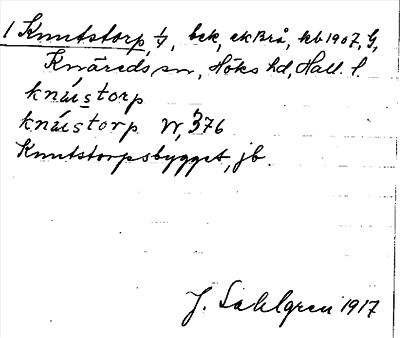 1 Knutstorp, 1/4, bek, ekBrå, kb 1907, G,
Knäreds sn, Höks hd, Hall. l.
knáistorp
knáistorp W, 376
Knutstorpsbygget, jb.
J. Sahlgren 1917